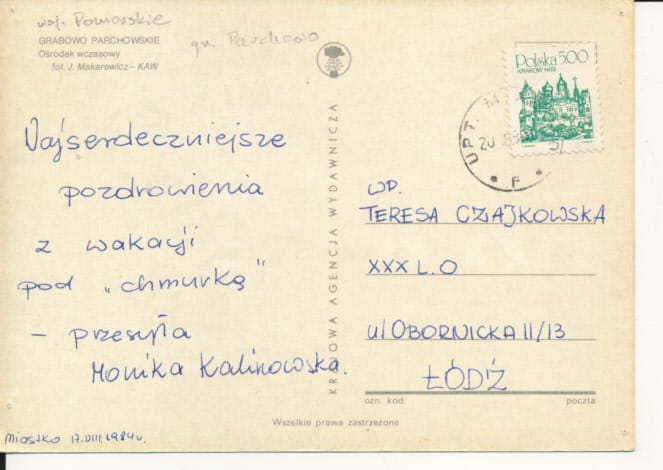 woj. Pomorskie
GRABOWO PARCHOWSKIE
Ośrodek wczasowy
fot. J. Makarewicz – KAW
gm. Parchowo
Najserdeczniejsze
pozdrowienia
z wakacji
pod „chmurką"
– przesyła
Monika Kalinowska.
Miastko 17.VIII.1984r.
KRAJOWA AGENCJA WYDAWNICZA
Polska 500
KRAKÓW 1493
UPT.
20
F
WP.
TERESA CZAJKOWSKA
XXX L.O
ul OBORNICKA 11/13
ŁÓDŹ
ozn. kod. poczta
Wszelkie prawa zastrzeżone